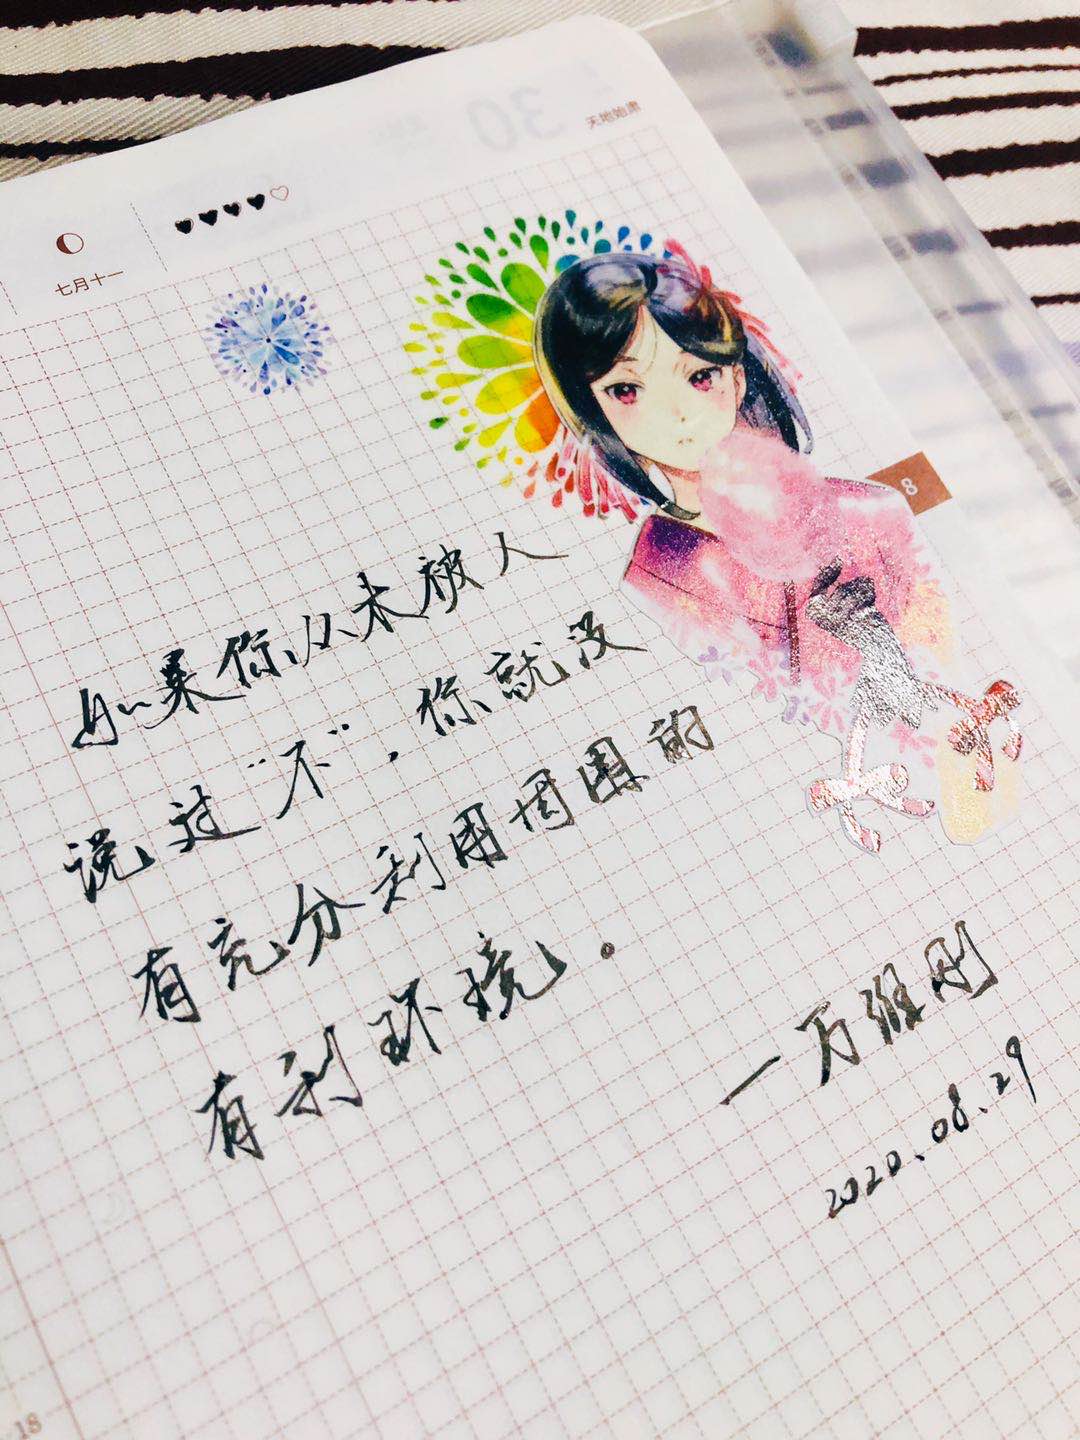 天地始肃
30
七月十一
8
如果你从未被人
说过“不”，你就没
有充分利用周围的
有利环境。
一万维刚
2020.08.29
18